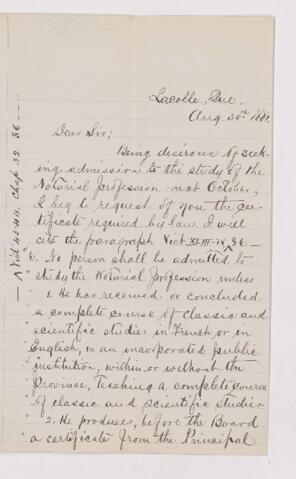 Lacolle, Que.
Aug 30th 1881.
Dear Sir;
Being desirous of seek-
ing admission to the study of the
Notarial profession next October,
I beg to request of you the Cer-
tificate required by law. I will
cite the paragraph Vict 36 —
6. No person shall be admitted to
study the Notarial Profession unless
1. He has received or concluded
a complete course of classic and
scientific studies in French or in
English, in an incorporated public
institution, within or without the
Province, teaching a complete course
of classic and scientific studies
2. He produces, before the Board
a certificate from the Principal
— Vict 43-44. Chap 32. 36 —